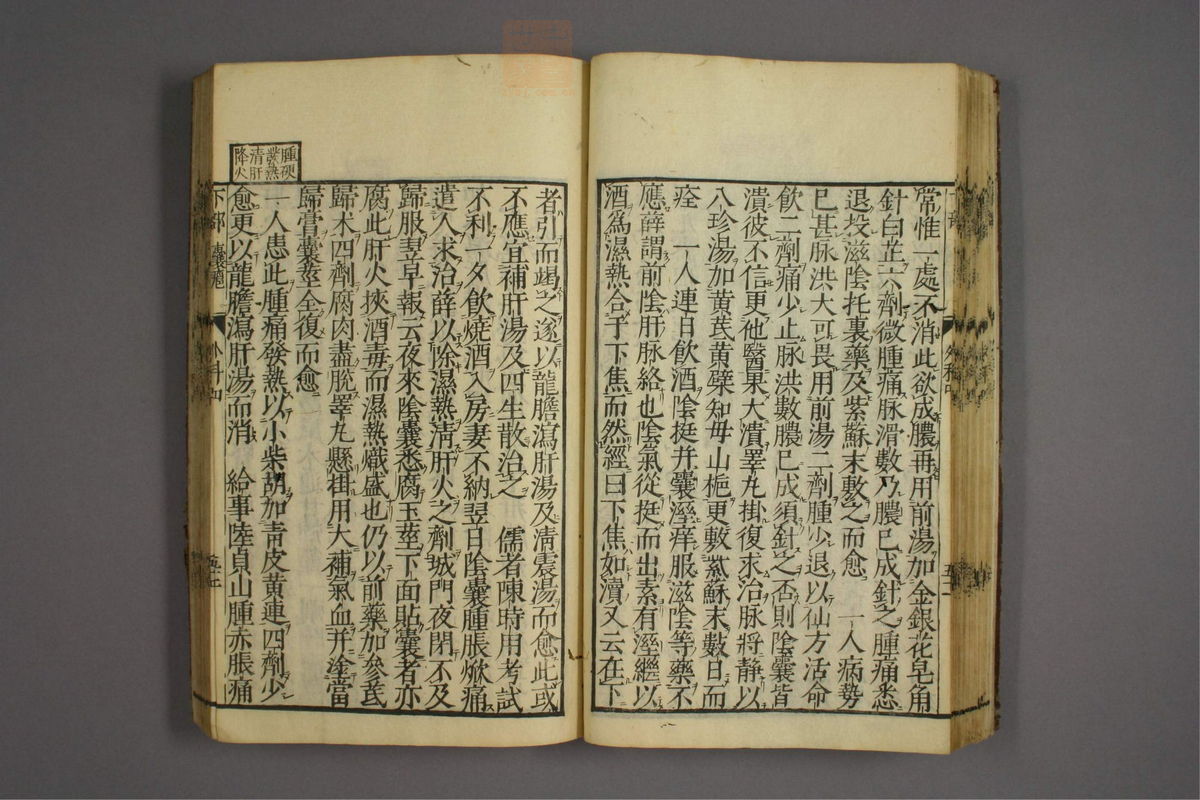 常惟一處不消此欲成膿再用前湯加金銀花皂角
針白芷六劑微腫痛脉滑數乃膿已成針之腫痛悉
退投滋陰托裏藥及紫蘇末敷之而愈　一人病勢
已甚脉洪大可畏用前湯二劑腫少退以仙方活命
飲二劑痛少止脉洪數膿已成須針之否則陰囊皆
潰彼不信更他醫果大潰睪丸掛復求治脉將靜以
八珍湯加黃芪黃蘗知母山梔更敷紫蘇末數日而
痊　一人連日飲酒陰挺并囊溼痒服滋陰等藥不
應薛謂前陰肝脉絡也陰氣從挺而出素有溼繼以
酒爲濕熱合于下焦而然經曰下焦如瀆又云在下
者引而竭之遂以龍膽瀉肝湯及清震湯而愈此或
不應宜補肝湯及四生散治之　儒者陳時用考試
不利一夕飲燒酒入房妻不納翌日陰囊腫脹焮痛
遣人求治薛以除濕熱清肝火之劑城門夜閉不及
歸服翌早報云夜來陰囊悉腐玉莖下面貼囊者亦
腐此肝火挾酒毒而濕熱熾盛也仍以前藥加參芪
歸朮四劑腐肉盡脫睪丸懸掛用大補氣血并塗當
歸膏囊莖全復而愈
腫硬
發熱
清肝
降火
一人患此腫痛發熱以小柴胡加青皮黃連四劑少
愈更以龍膽瀉肝湯而消　給事陸貞山腫赤脹痛
下部　囊癰　外科四　五十二